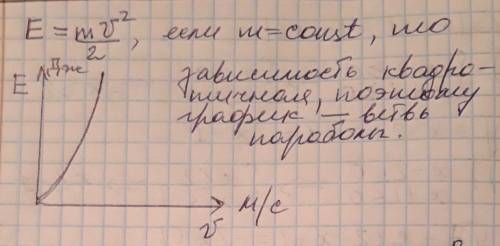 E = mv²/2, если m=const, то
E Дж
зависимость квадра-
тичная, поэтому
график — ветвь
параболы.
v м/с